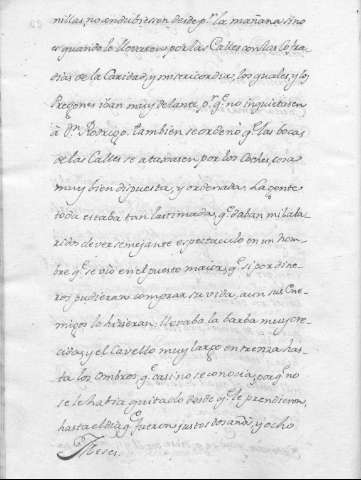 nillas, no andubiessen desde pr. la mañana sino
es quando lo llevaron, por las Calles con las Cofra-
dias de la Caridad y misericordia, los quales, y los
Pregones iban muy delante, pr. qe. no inquietasen
à Dn. Rodrigo. Tambien se ordenò qe. las bocas
de las Calles se atasasen por los Coches, cosa
muy bien dispuesta, y ordenada. La gente
toda estaba tan lastimada, qe. daban mil ala-
ridos de ver semejante espectaculo en un hom-
bre qe. se vió en el puesto maior, qe. si por dine-
ros pudieran comprar su vida, aun sus Ene-
migos lo hisieran: llevaba la barba muy cre-
cida, y el Cavello muy largo en trenza has-
ta los ombros qe. casi no se conocia, porqe. no
se le habia quitado desde qe. le prendieron,
hasta el dia, qe. fueron justos dos años, y ocho
Meses.